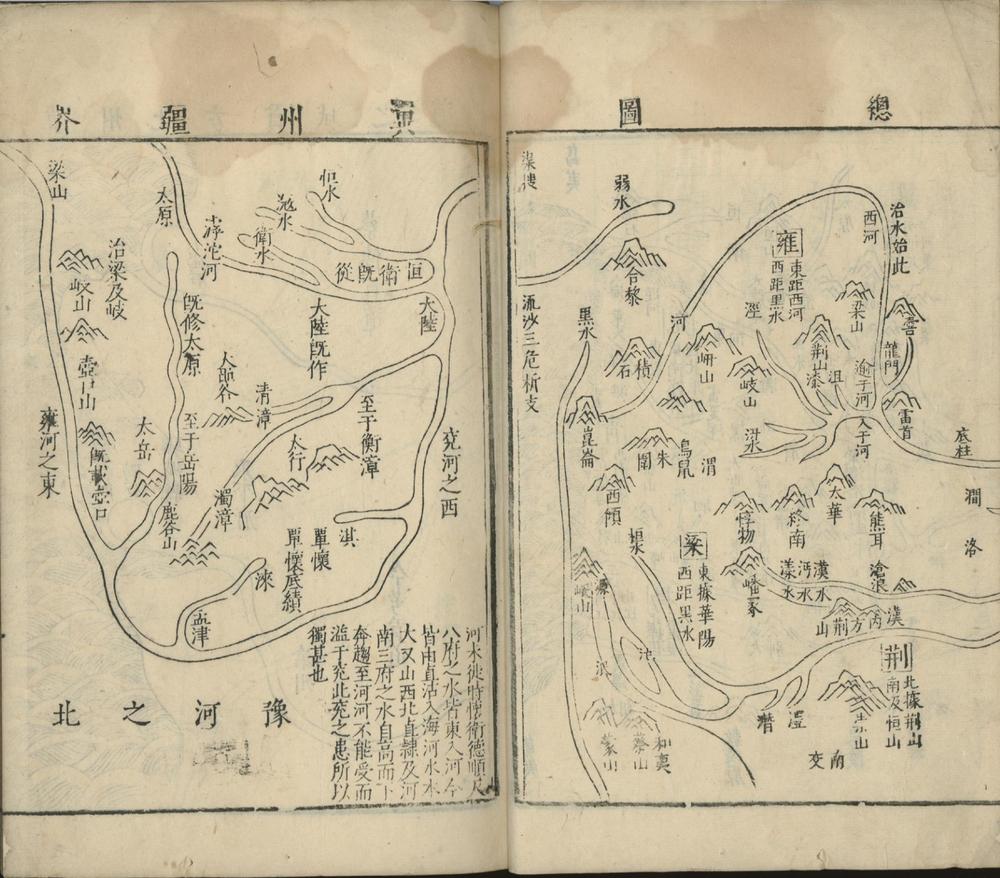 總
圖
治水始此
西河
雍
東距西河
西距黑水
弱水
合黎
梁山
龍門
荊山
漆
沮
涇
河
黑水
積石
岍山
岐山
渝于河
入于河
雷首
底柱
澗
洛
流沙三危析支
崑崙
朱圉
鳥鼠
渭
西傾
太華
熊耳
終南
惇物
桓水
梁
東據華陽
西距黑水
嶓冢
漢水
沔水
漾水
滄浪
漢
内方
荊山
岷山
沱
荊
北據荊山
南及恒山
潛
澧
和夷
蔡山
蒙山
南交
冀州疆界
梁山
太原
滹沱河
恒水
滱水
衛水
恒衛既從
大陸
大陸既作
治梁及岐
岐山
壺口山
既載壺口
雍河之東
既修太原
太岳
至于岳陽
鹿谷山
大黽谷
清漳
太行
至于衡漳
濁漳
兗河之西
淇
覃懷
覃懷底績
淶
孟津
豫河之北
河未徙時懷衛德順
八府之水皆東入河今
皆由直沽入海河水本
大又山西北直隸及河
南三府之水自高而下
奔趨至河河不能受而
溢于兗此兗之患所以
獨甚也